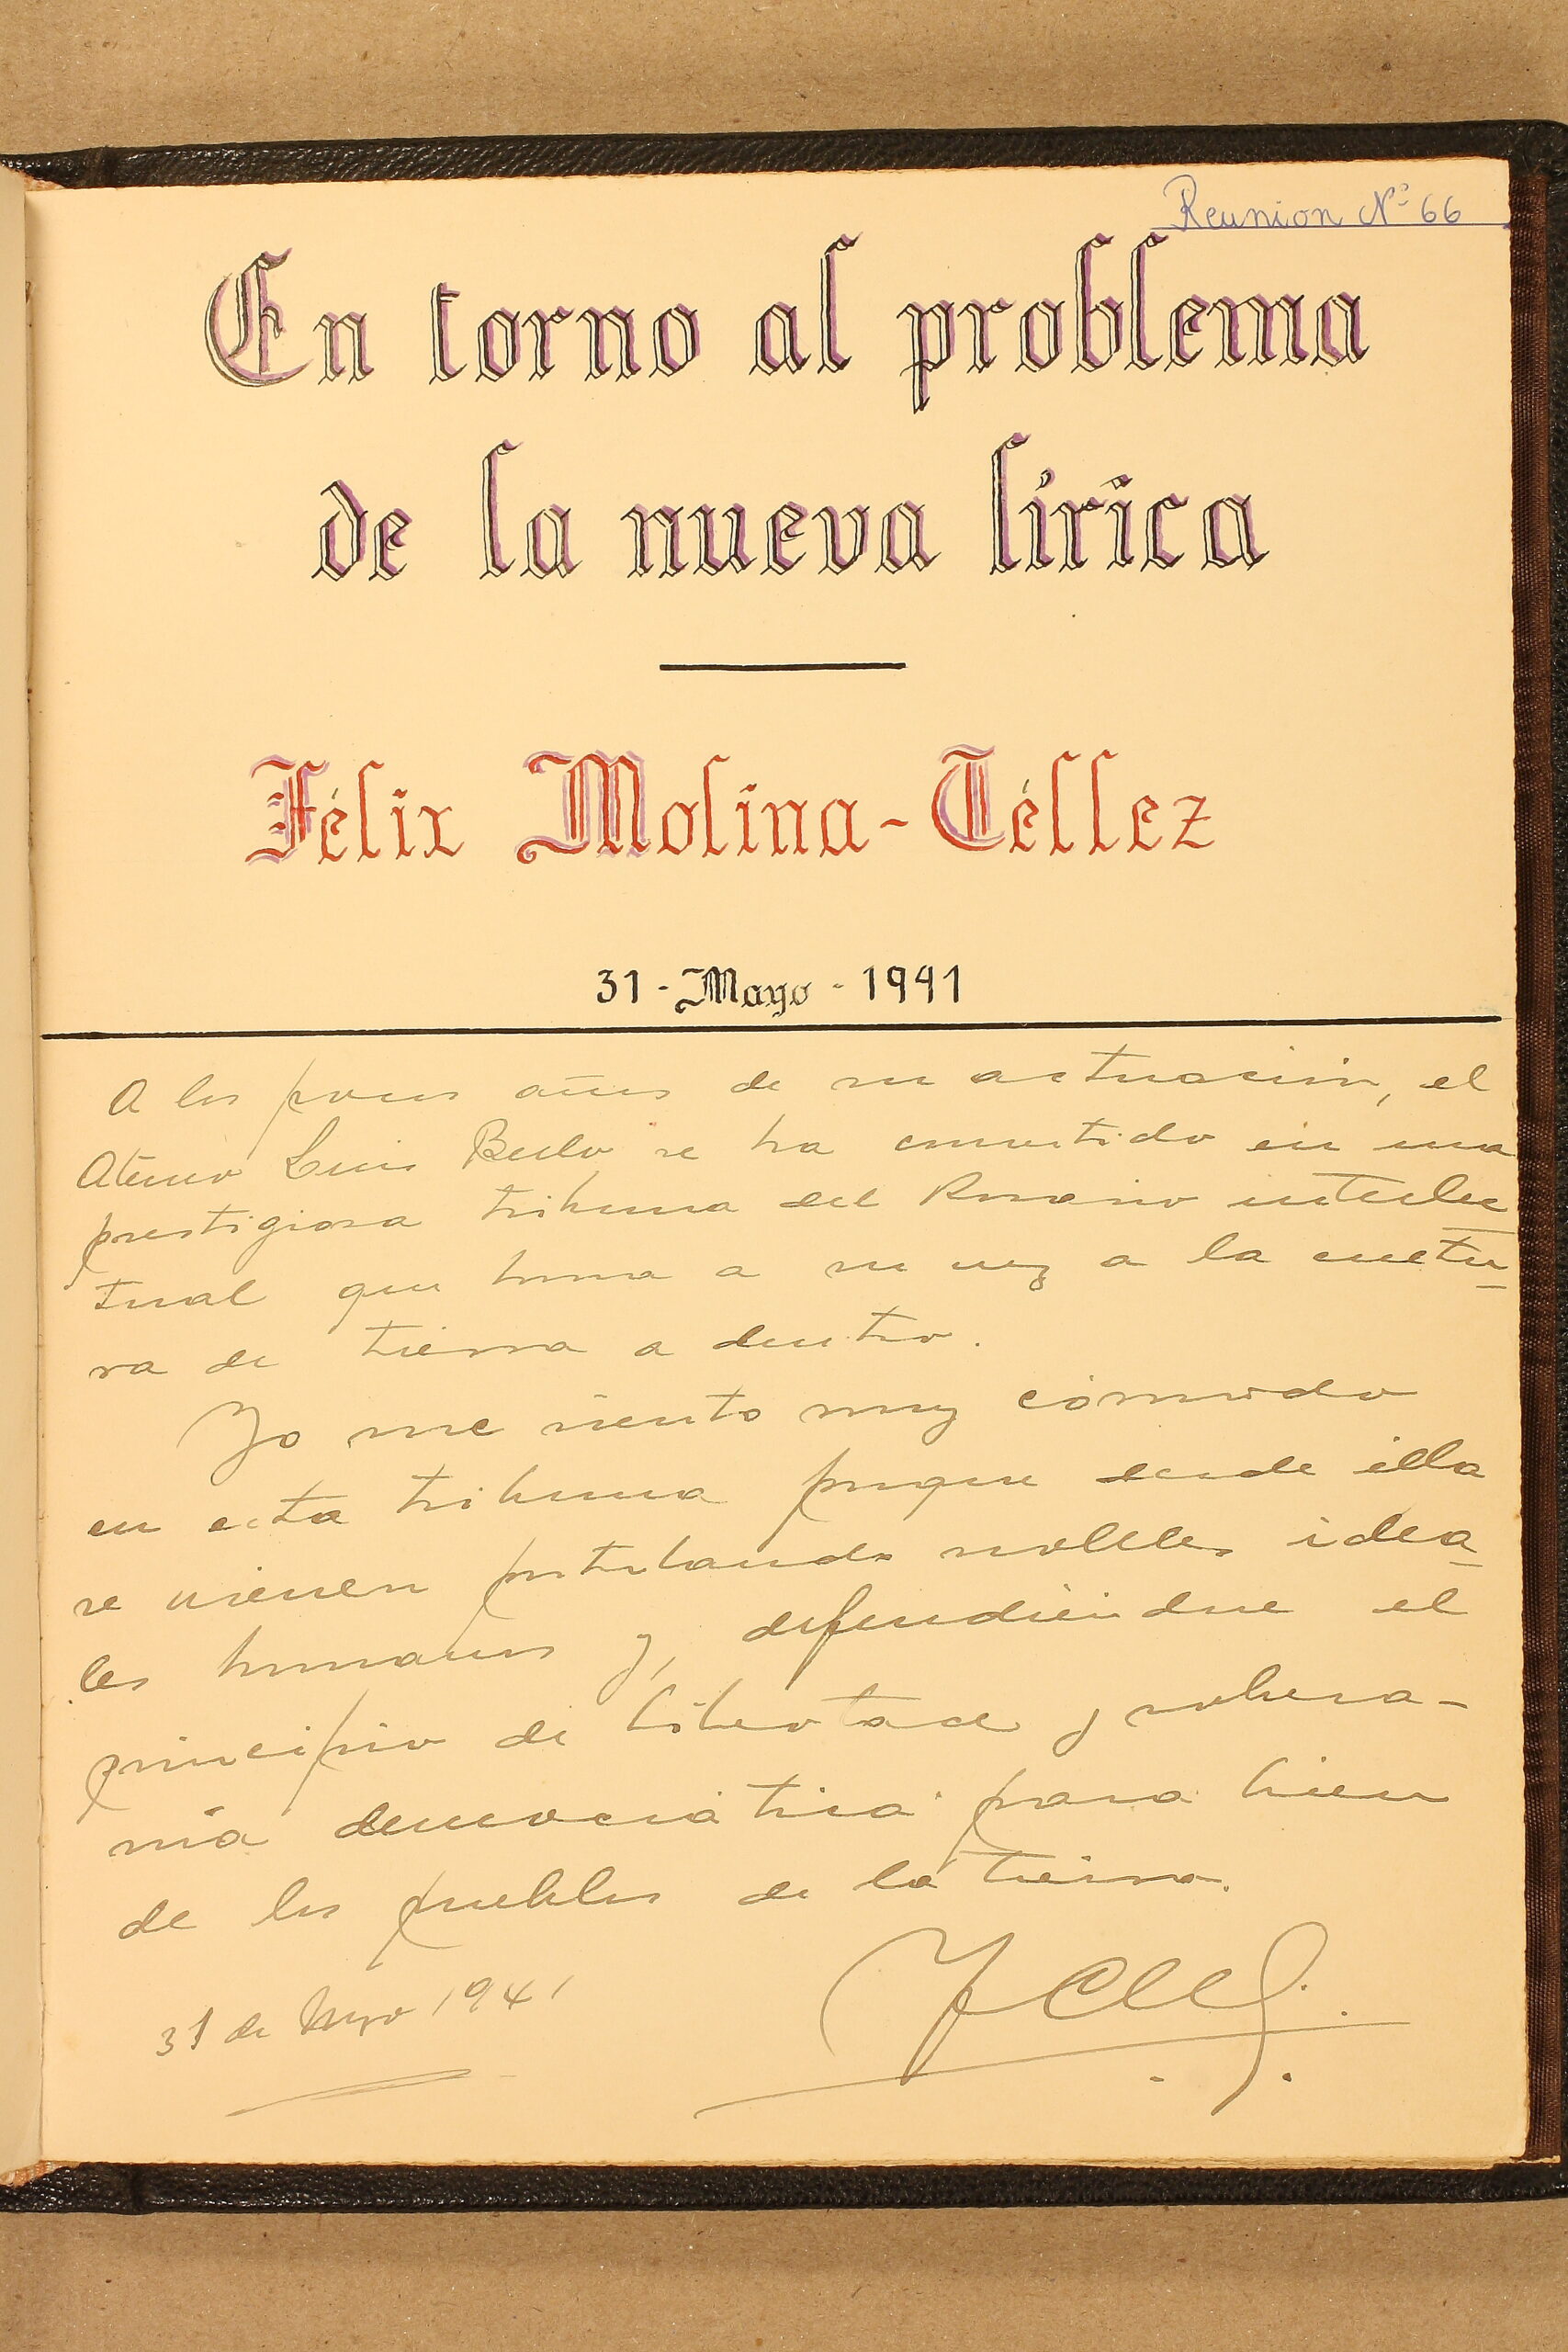 Reunion Nº 66
En torno al problema
de la nueva lírica
Félix Molina-Téllez
31 - Mayo - 1941
A los pocos años de su actuación, el
Ateneo Luis Bello se ha convertido en una
prestigiosa tribuna del Rosario intelec
tual que honra a su vez a la cultu-
ra de tierra a dentro.
Yo me siento muy cómodo
en esta tribuna porque desde ella
se vienen postulando nobles idea-
les humanos y, defendiéndose el
principio de libertad y sobera-
nía democrática para bien
de los pueblos de la tierra.
31 de Mayo 1941